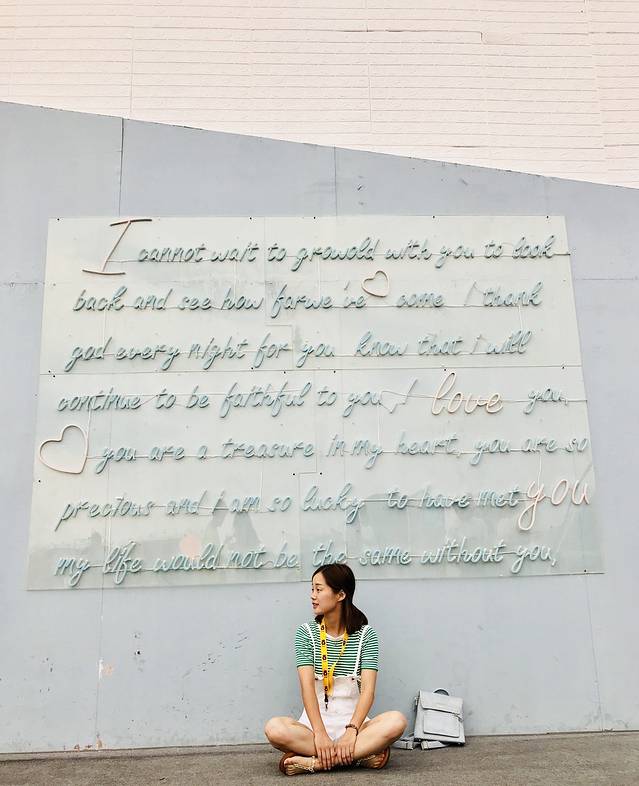 I cannot wait to growold with you to look
back and see how farwe've come I thank
god every night for you know that i will
continue to be faithful to you, I love you,
you are a treasure in my heart, you are so
precious and i am so lucky to have met you
my life would not be the same without you,